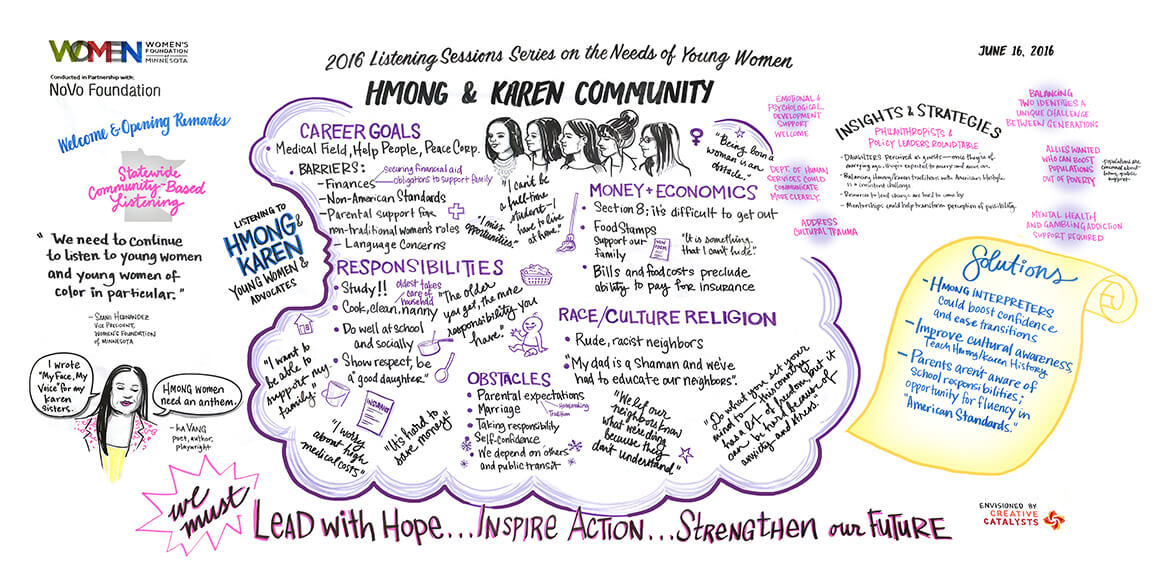 WOMEN
WOMEN'S
FOUNDATION
OF
MINNESOTA
Conducted in Partnership with:
NoVo Foundation
2016 Listening Sessions Series on the Needs of Young Women
HMONG & KAREN COMMUNITY
JUNE 16, 2016
Welcome & Opening Remarks
Statewide
Community-Based
Listening
" We need to continue
to listen to young women
and young women of
color in particular."
VICE PRESIDENT,
WOMEN'S FOUNDATION
OF MINNESOTA
I wrote
"My Face, My
Voice" for my
Karen
sisters.
HMONG women
need an anthem.
- KA VANG
poet, author,
playwright
LISTENING TO
HMONG &
KAREN
YOUNG WOMEN &
ADVOCATES
CAREER GOALS
Medical Field, Help People, Peace Corp.
• BARRIERS:
- Finances
securing financial aid
obligations to support family
- Non-American Standards
- Parental support for
non-traditional women's roles
- Language Concerns
"I miss
opportunities."
"I can't be
a full-time
student - I
have to live
at home."
"Being born a
woman is an
obstacle."
RESPONSIBILITIES
• Study!!
oldest takes
care of
household
• Cook, clean, nanny
• Do well at school
and socially
• Show respect, be
a "good daughter."
"The older
you get, the more
responsibility you
have."
"I want to
be able to
support my
family."
INSURANCE
"I worry
about high
medical costs"
"It's hard to
save money"
OBSTACLES
• Parental expectations
• Marriage
Homemaking
Tradition
• Taking responsibility
• Self-confidence
• We depend on others
and public transit
MONEY + ECONOMICS
• Section 8; it's difficult to get out
• Food Stamps
support our
family
"It is something
that I can't hide."
• Bills and food costs preclude
ability to pay for insurance
RACE/CULTURE RELIGION
• Rude, racist neighbors
• "My dad is a Shaman and we've
had to educate our neighbors".
"We let our
neighbors know
what we're doing
because they
don't understand"
"Do what you set your
mind to - this country
has a lot of freedom, but it
can be hard because of
anxiety and stress."
EMOTIONAL &
PSYCHOLOGICAL
DEVELOPMENT
SUPPORT
WELCOME
DEPT. OF HUMAN
SERVICES COULD
COMMUNICATE
MORE CLEARLY.
ADDRESS
CULTURAL TRAUMA
INSIGHTS & STRATEGIES
PHILANTHROPISTS &
POLICY LEADERS ROUNDTABLE
- DAUGHTERS perceived as guests - once they're of
marrying age, they're expected to marry and move on.
- Balancing Hmong/Karen traditions with American lifestyle
is a constant challenge
- Resources to lead change are hard to come by
- Mentorships could help transform perception of possibility.
BALANCING
TWO IDENTITIES A
UNIQUE CHALLENGE
BETWEEN GENERATIONS
ALLIES WANTED
WHO CAN BOOST
POPULATIONS
OUT OF POVERTY
MENTAL HEALTH
AND GAMBLING ADDICTION
SUPPORT REQUIRED
Solutions
- HMONG INTERPRETERS
could boost confidence
and ease transitions
- Improve cultural awareness,
Teach Hmong/Karen History.
- Parents aren't aware of
school responsibilities;
opportunity for fluency in
"American Standards."
we
must
LEAD with HOPE... INSPIRE ACTION... STRENGTHEN our FUTURE
ENVISIONED BY
CREATIVE
CATALYSTS